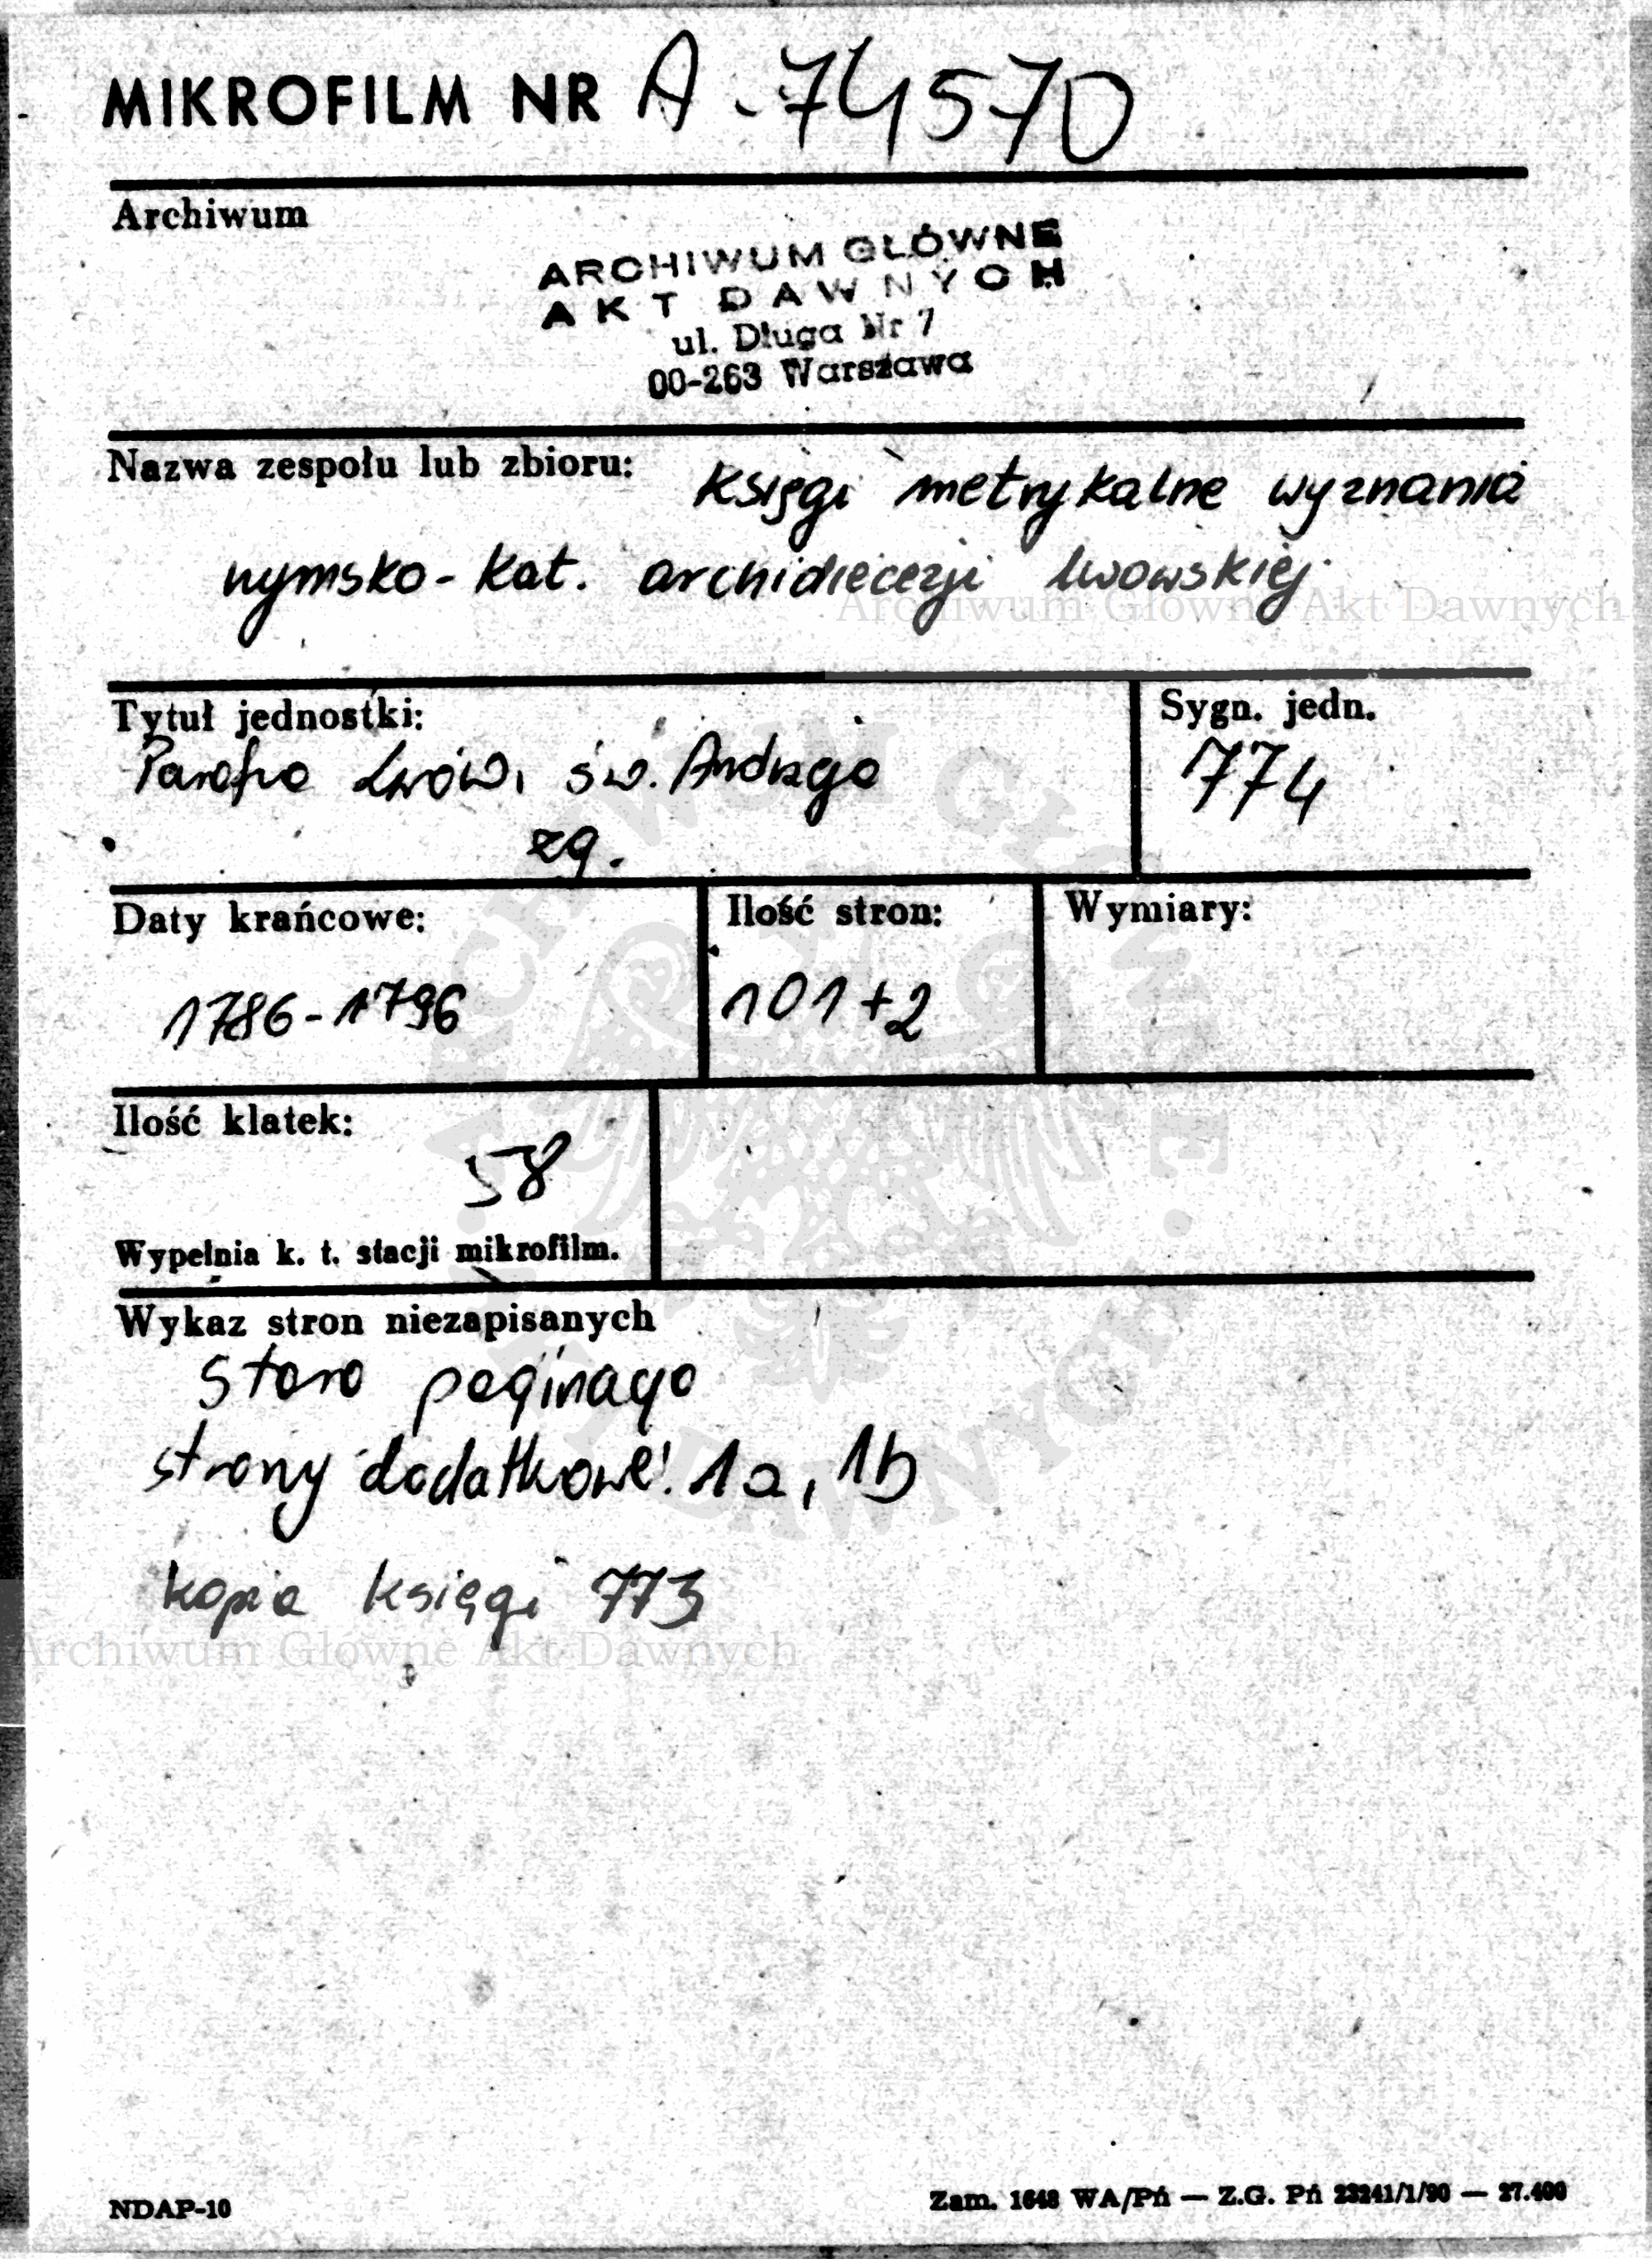 MIKROFILM NR A-74570
Archiwum
ARCHIWUM GŁÓWNE
AKT DAWNYCH
ul. Długa Nr 7
00-263 Warszawa
Nazwa zespołu lub zbioru: Księgi metrykalne wyznania
rymsko-kat. archidiecezji lwowskiej
Archiwum Główne Akt Dawnych
Tytuł jednostki:
Sygn. jedn.
Parafia Lwów, św. Andrzeja
774
zg.
Daty krańcowe:
Ilość stron:
Wymiary:
1786-1796
101+2
Ilość klatek:
58
Wypełnia k. t. stacji mikrofilm.
Wykaz stron niezapisanych
stara paginacja
strony dodatkowe: 1a, 1b
kopia księgi 773
Archiwum Główne Akt Dawnych
ARCHIWUM GŁÓWNE AKT DAWNYCH
NDAP-10
Zam. 1648 WA/Pń — Z.G. Pń 23241/1/90 — 27.400